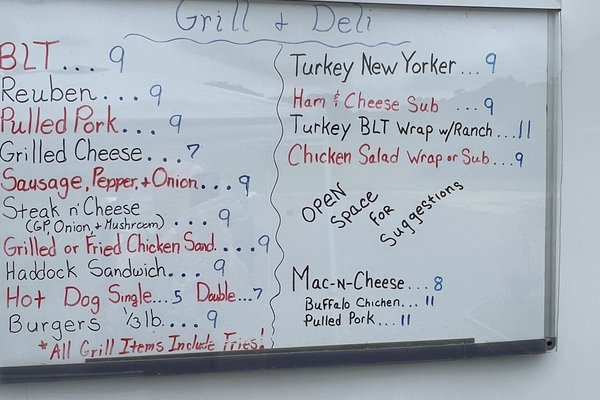 Grill & Deli
BLT... 9
Reuben... 9
Pulled Pork... 9
Grilled Cheese... 7
Sausage, Pepper, + Onion... 9
Steak n' Cheese .... 9
(GP, Onion, + Mushroom)
Grilled or Fried Chicken Sand.... 9
Haddock Sandwich.... 9
Hot Dog Single... 5 Double... 7
Burgers 1/3 lb.... 9
*All Grill Items Include Fries!
Turkey New Yorker ... 9
Ham & Cheese Sub ... 9
Turkey BLT Wrap w/Ranch ... 11
Chicken Salad Wrap or Sub... 9
OPEN
Space
For
Suggestions
Mac-N-Cheese... 8
Buffalo Chicken... 11
Pulled Pork... 11